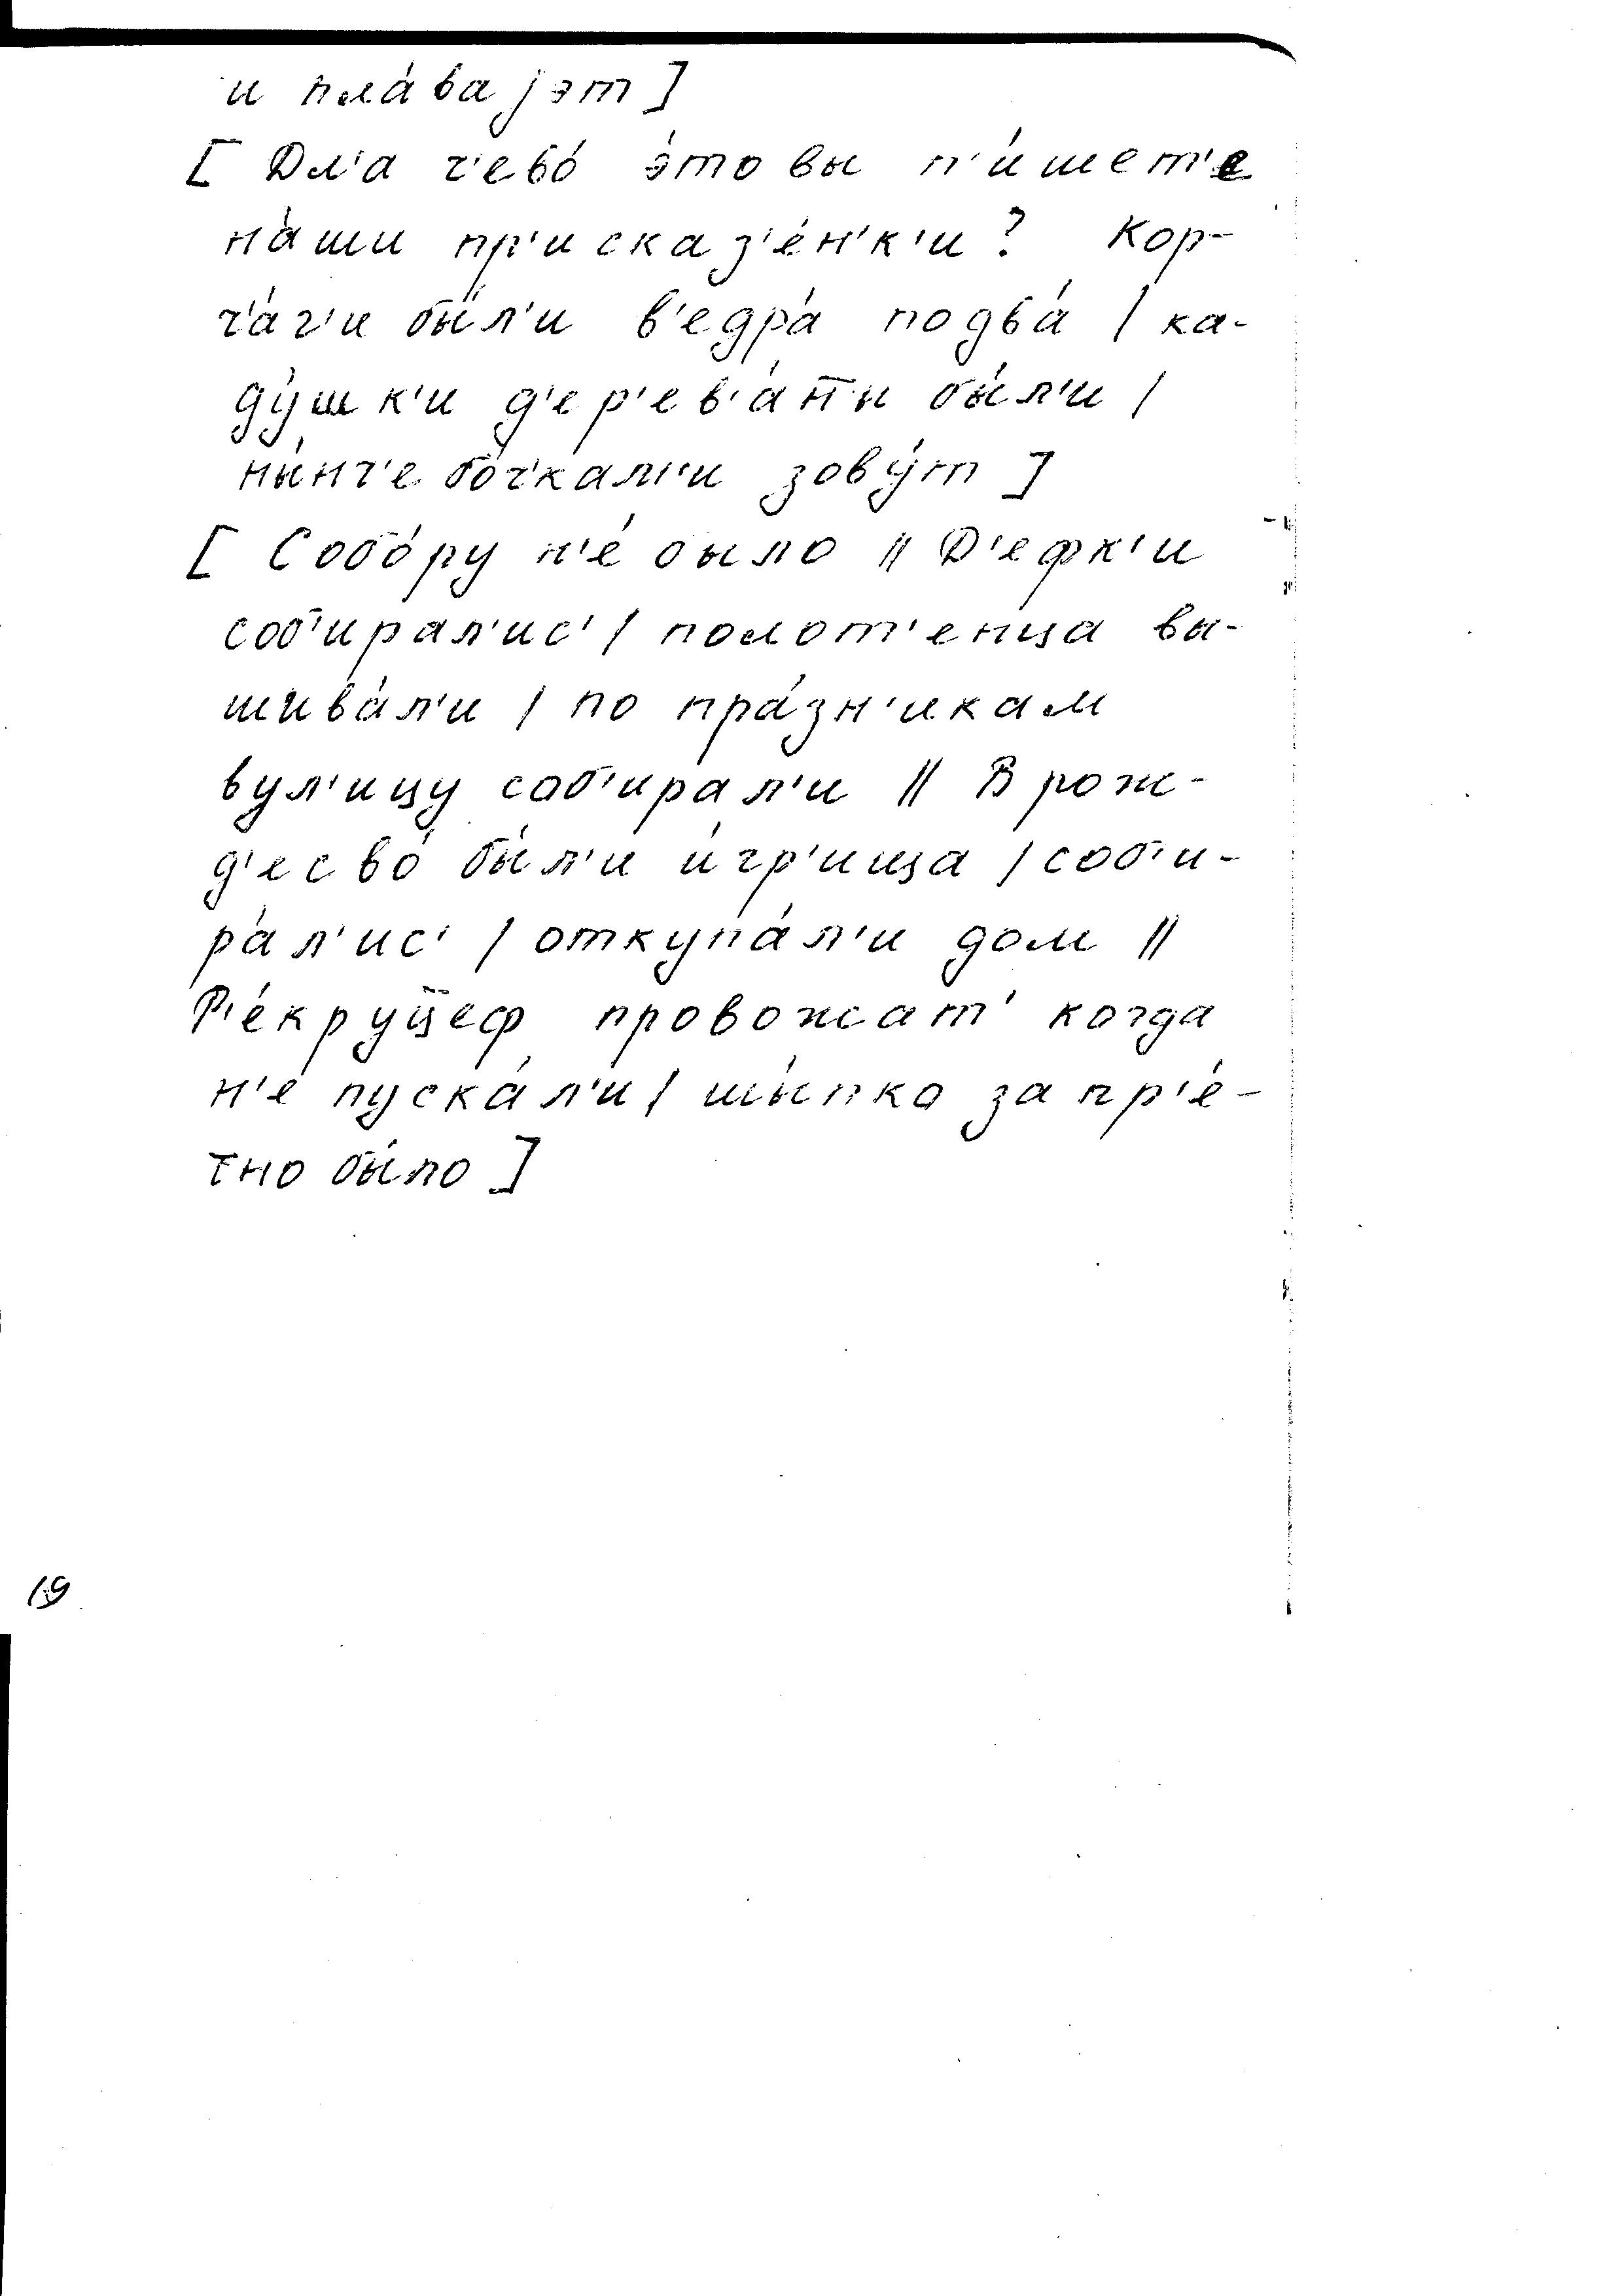 и пла́ваjэт]
[Дл'а ч'ево́ э́то вы п'и́шет'е
на́ши пр'исказ'е́н'к'и? Кор-
ч'а́г'и бы́л'и в'едра́ по два́ / ка-
ду́шк'и д'ер'ев'а́н̄ы бы́л'и /
ны́нч'е бо́ч'кам'и зову́т]
[Собо́ру н'е́ было // Д'е́фк'и
соб'ирал'ис' / полот'енца вы-
шива́л'и / по пра́зн'икам
вул'ицу соб'ирал'и // В рож-
д'есво́ бы́л'и и́гр'ища / соб'и-
ра́л'ис' / откупа́л'и дом //
Р'е́круцеф провожат' когда
н'е́ пуска́л'и / шы́пко запр'е́-
тно бы́ло]
19